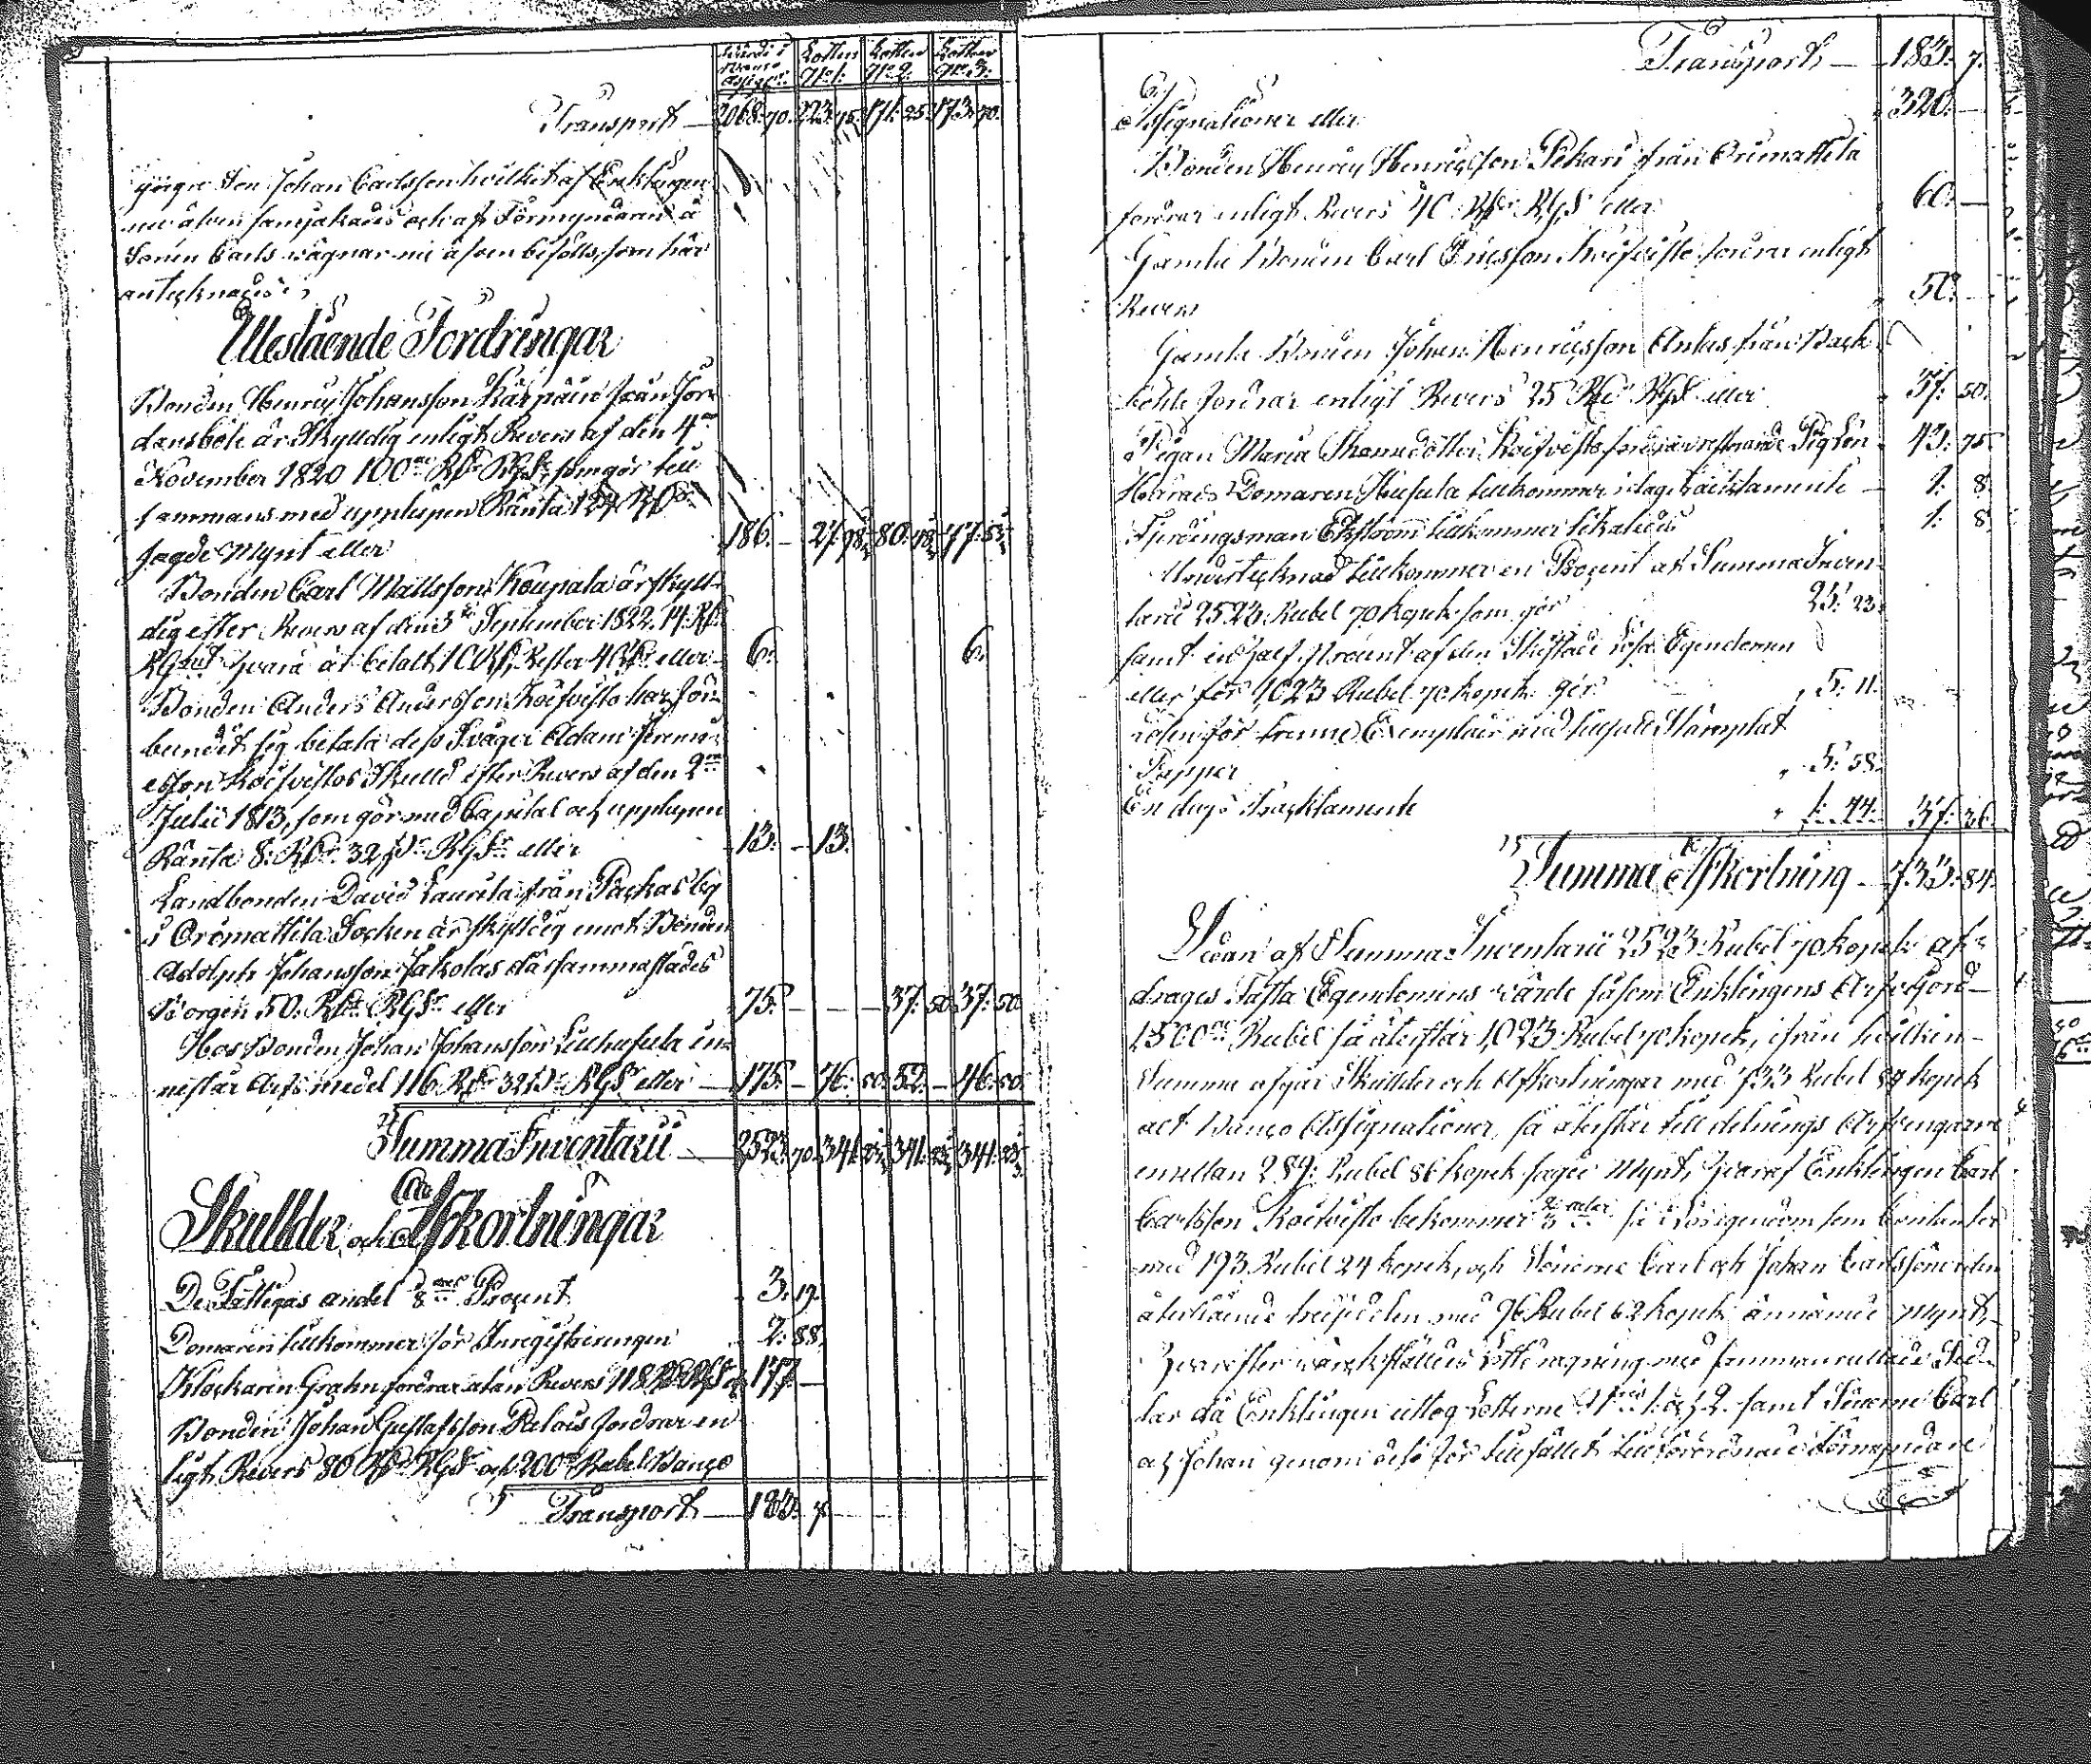 Värde i Banco Assign: Lotten N:o 1. Lotten N:o 2. Lotten N:o 3.
Transport — 2068. 70. 223. 75. 171. 25. 173. 70.
yngre Son Johan Carlsson hvilket af Enklingen
nu äfven samtyckades och af Förmyndaren å
Sonen Carls vägnar nu äfven bifölls, som här
antecknades
Utestående Fordringar
Bonden Henric Johansson Kärpäin från Jor-
dansböle är Skylldig enligt Revers af den 4de
November 1820 100de RD RGS, som gör till
sammans med upplupen Ränta 124 RD
sagde Mynt eller 186. —
Bonden Carl Mattsson Koupala är skyll-
dig efter Revers af den 3de September 1822. 14. RD
RGS hvara är betalt 10 RD, Rester 4 RD eller 6. 6.
Bonden Anders Andersson Koifvisto har för-
bundit sig betala dess Svåger Adam
Koifvistos Skulld efter Revers af den 2de
Julii 1813, som gör med Capital och upplupen
Ränta 8. RD 32 s. RGS eller 13. — 13.
Landbonden David Laurila från Packas by
i Orimattila Socken är skylldig emot Bonden
Adolph Johansson Jakolas därsammastädes
Borgen 50. RD RGS eller 75. — — — 37. 50. 37. 50.
Hos Bonden Johan Johansson Lillhufula in-
nestår Arfs medel 116 RD 32 s. RGS eller — 175. — 76. 50. 52. — 46. 50.
Summa Inventarii — 2523. 70. 341. 341. 341.
Skullder och Afkortningar
De Fattigas andel 8 Procent 3. 19.
Domaren tillkommer för Inregistreringen 2. 88.
Klockaren Grahn fordrar utan Revers 118 RD RGS 177. —
Bonden Johan Gustafsson Palois fordrar en
ligt Revers 80 RD RGS och 200de Rubel Banco
Transport — 183. 7.
Transport — 183. 7.
Assignationer eller 320. —
Bonden Henric Henricsson Pekari från Orimattila
fordrar enligt Revers 40. RD RGS eller 60. —
Gamle Bonden Carl Ericsson Koifvisto fordrar enligt
Revers 50. —
Gamle Bonden Johan Henricsson Antas från Back
böhle fordrar enligt Revers 25 RD RGS eller 37. 50.
Pigan Maria Koifvisto fordrar resterande Piglön 43. 75
Härads Domaren Hufula tillkommer i dagtracktamente — 1. 8.
Fjerdingsman Ekström tillkommer likaledes 1. 8.
Undertecknad tillkommer en Procent af Summa Inven-
tarii 2523. Rubel 70 kopek som gör 25. 23.
samt en half Procent af den Skiftade lösa Egendomen
eller för 1,023 Rubel 70 kopek gör 5. 11.
Lösen för trenne Exemplair med tillfalle Stämplat
Papper 5. 58.
En dags tracktamente 1. 44. 37. 36.
Summa Afkortning — 733. 84.
Sedan af Summa Inventarii 2523. Rubel 70 kopek af-
drages Fasta Egendomens värde såsom Enklingens Arfvejord
1500de Rubel så återstår 1,023 Rubel 70 kopek, ifrån hvilken
Summa afgår Skullder och Afkortningar med 733 Rubel 84 kopek
allt Banco Assignationer, så återstår till delnings Arfvingarne
emellan 289. Rubel 86 kopek sagde Mynt, hvaraf Enklingen Carl
Carlsson Koifvisto bekommer 2/3 delar så i Lösegendom som Contanter
med 193 Rubel 24 kopek, och Sönerne Carl och Johan Carlssöner den
återstående tredjedelen med 96 Rubel 62 kopek ännämde Mynt,
hvarefter värckställdes Lottdragning med sammanrullade Sed-
lar då Enklingen uttog Lotterne N:ris 1 och 2. samt Sönerne Carl
och Johan genom dess för tillfället tillförordnade Förmyndare